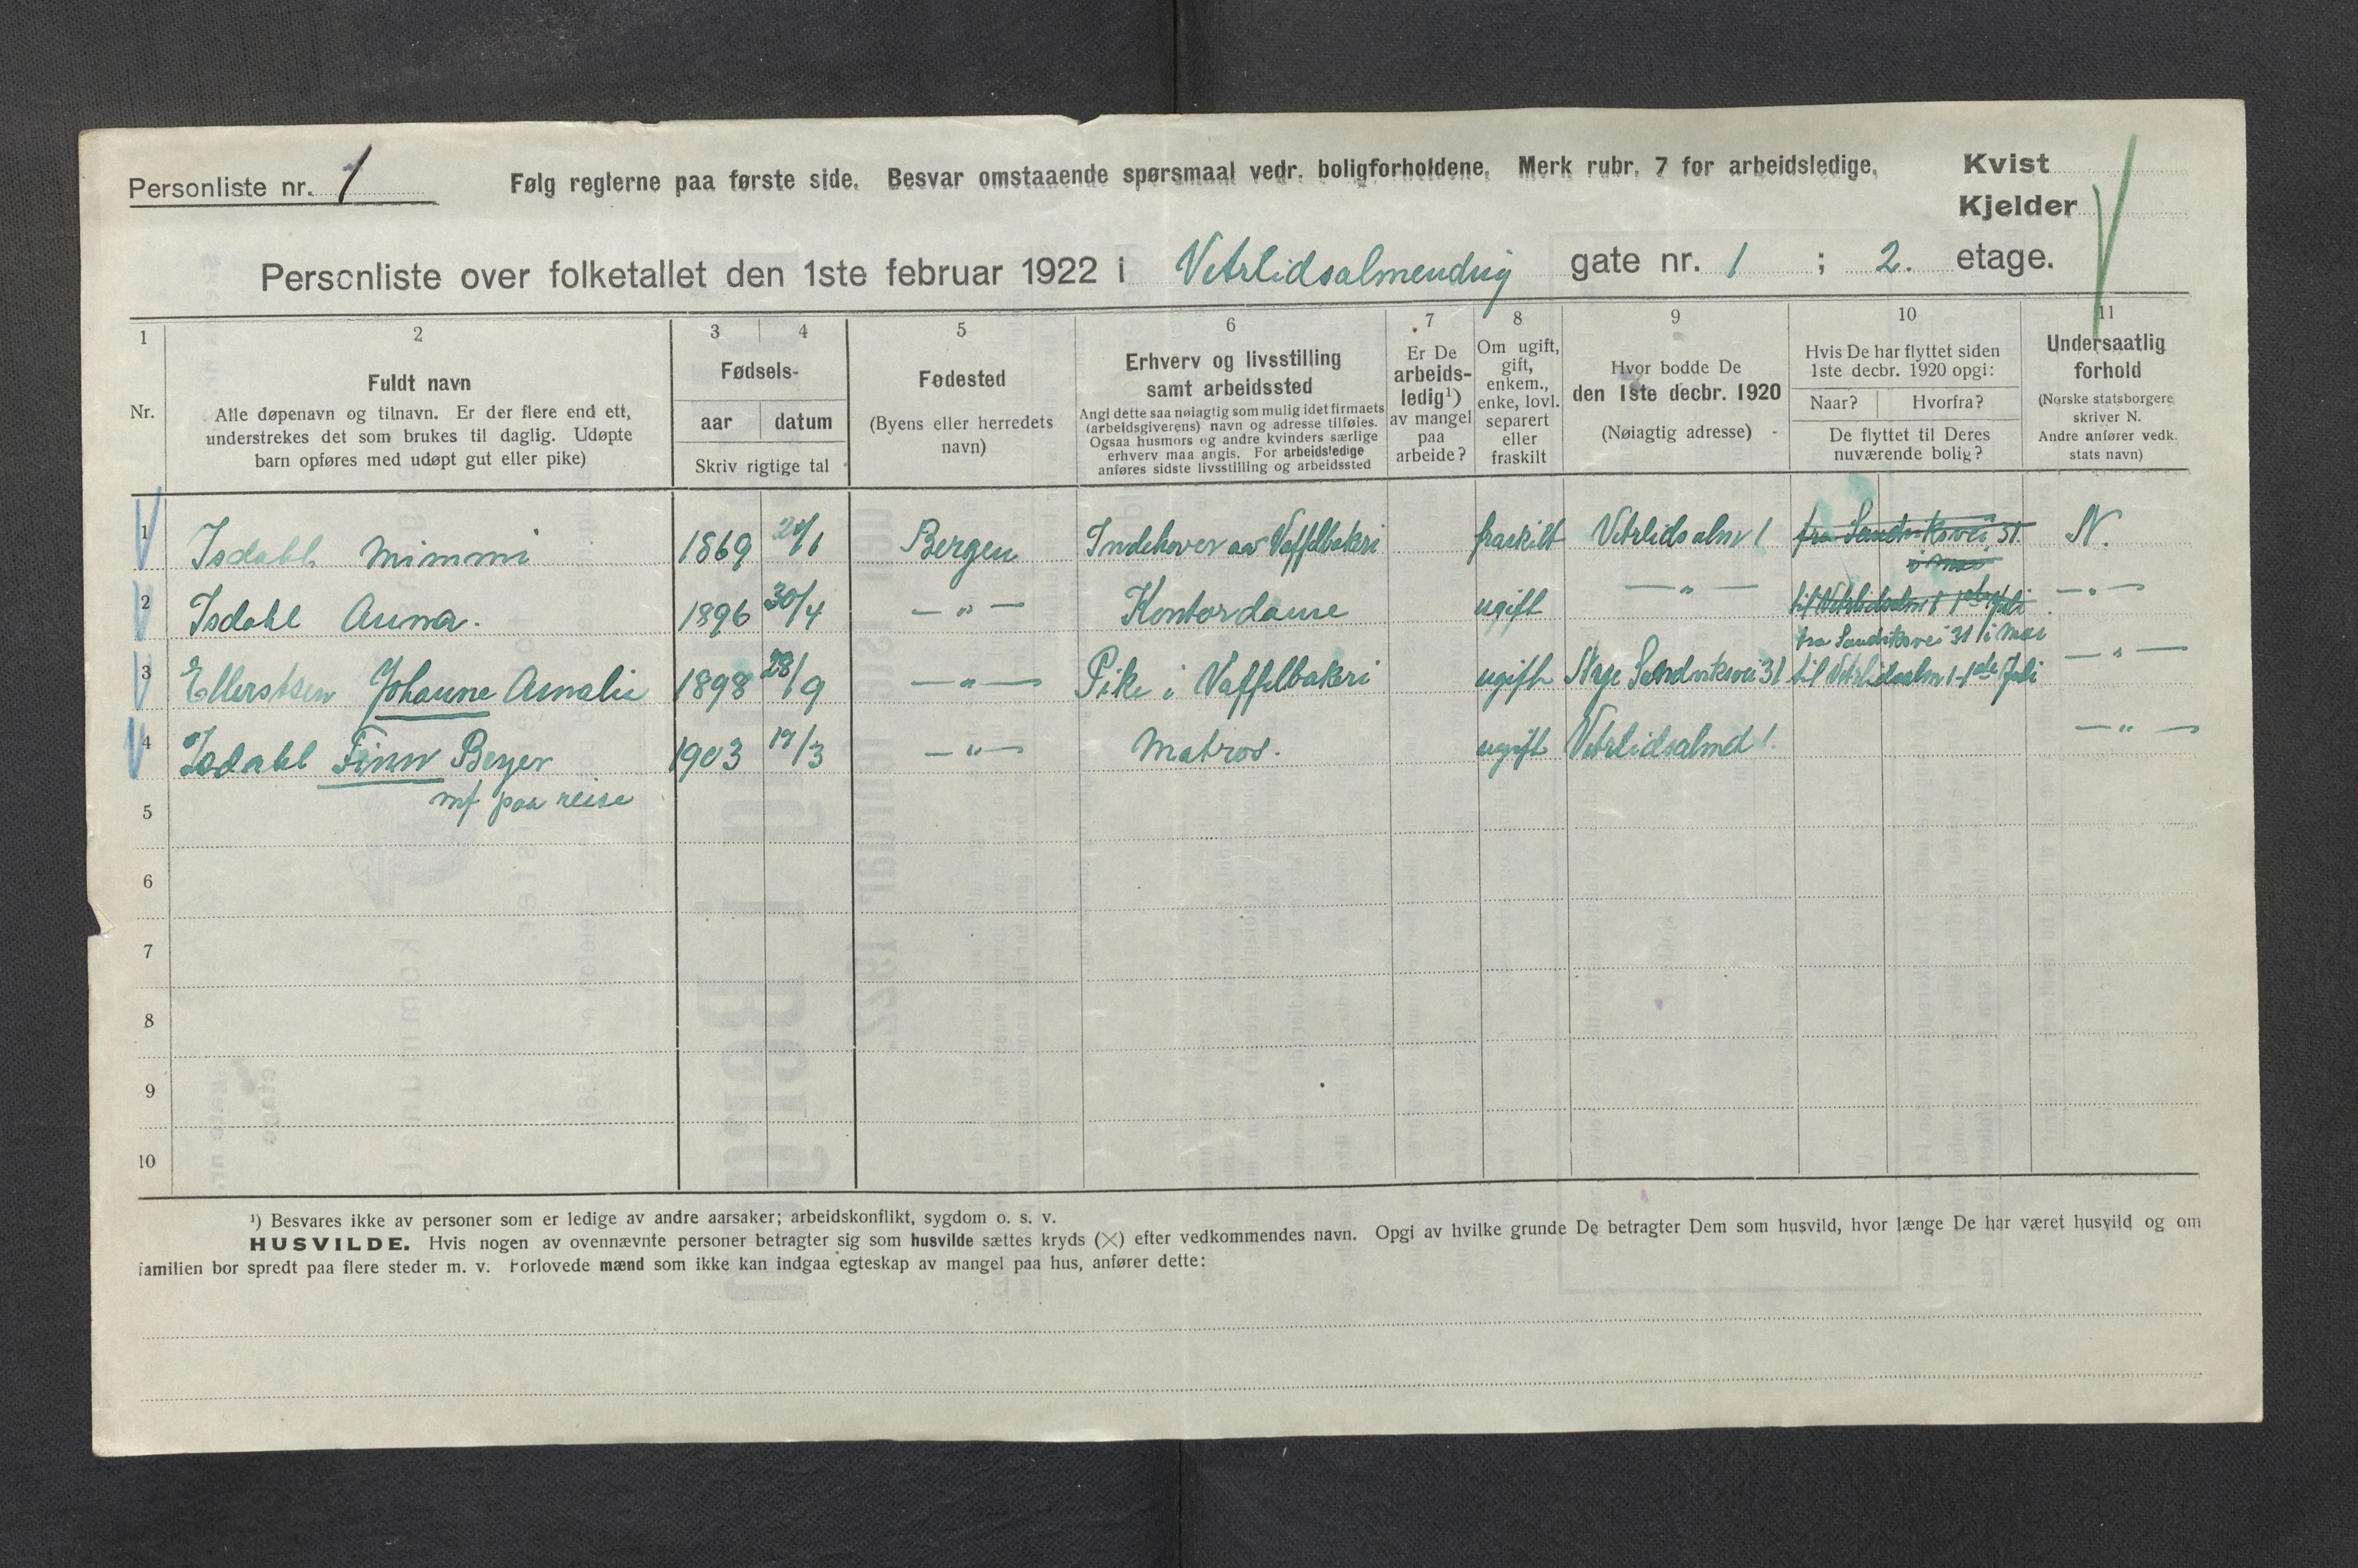 Personliste nr. 1
Følg reglerne paa første side. Besvar omstaaende spørsmaal vedr. boligforholdene. Merk rubr. 7 for arbeidsledige.
Kvist
Kjelder
Personliste over folketallet den 1ste februar 1922 i Vetrlidsalmendnig gate nr. 1 ; 2. etage.
1 2 3 4 5 6 7 8 9 10 11
Nr.
Fuldt navn
Alle døpenavn og tilnavn. Er der flere end ett,
understrekes det som brukes til daglig. Udøpte
barn opføres med udøpt gut eller pike)
Fødsels-
aar datum
Skriv rigtige tal
Fødested
(Byens eller herredets
navn)
Erhverv og livsstilling
samt arbeidssted
Angi dette saa nøiagtig som mulig idet firmaets
(arbeidsgiverens) navn og adresse tilføies.
Ogsaa husmors og andre kvinders særlige
erhverv maa angis. For arbeidsledige
anføres sidste livsstilling og arbeidssted
Er De
arbeids-
ledig¹)
av mangel
paa
arbeide?
Om ugift,
gift,
enkem.,
enke, lovl.
separert
eller
fraskilt
Hvor bodde De
den 1ste decbr. 1920
(Nøiagtig adresse)
Hvis De har flyttet siden
1ste decbr. 1920 opgi:
Naar? Hvorfra?
De flyttet til Deres
nuværende bolig?
Undersaatlig
forhold
(Norske statsborgere
skriver N.
Andre anfører vedk.
stats navn)
1 Isdahl Mimmi 1869 /1 Bergen Indehaver av Vaffelbakeri fraskilt Vetrlidsalm 1 fra Sandviksvei 31 N.
i mai
2 Isdahl Anna. 1896 30/4 — " — Kontordame ugift — " — til Vetrlidsalm 1 1ste Juli — " —
fra Sandviksvei 31 i mai
3 Ellertsen Johanne Amalie 1898 28/9 — " — Pike i Vaffelbakeri ugift Sandviksvei 31 til Vetrlidsalm 1 1ste Juli — " —
4 Isdahl Finn Beyer 1903 /3 — " — Matros. ugift Vetrlidsalmd 1. — " —
mf paa reise
5
6
7
8
9
10
¹) Besvares ikke av personer som er ledige av andre aarsaker; arbeidskonflikt, sygdom o. s. v.
HUSVILDE. Hvis nogen av ovennævnte personer betragter sig som husvilde sættes kryds (×) efter vedkommendes navn. Opgi av hvilke grunde De betragter Dem som husvild, hvor længe De har været husvild og om
familien bor spredt paa flere steder m. v. Forlovede mænd som ikke kan indgaa egteskap av mangel paa hus, anfører dette: